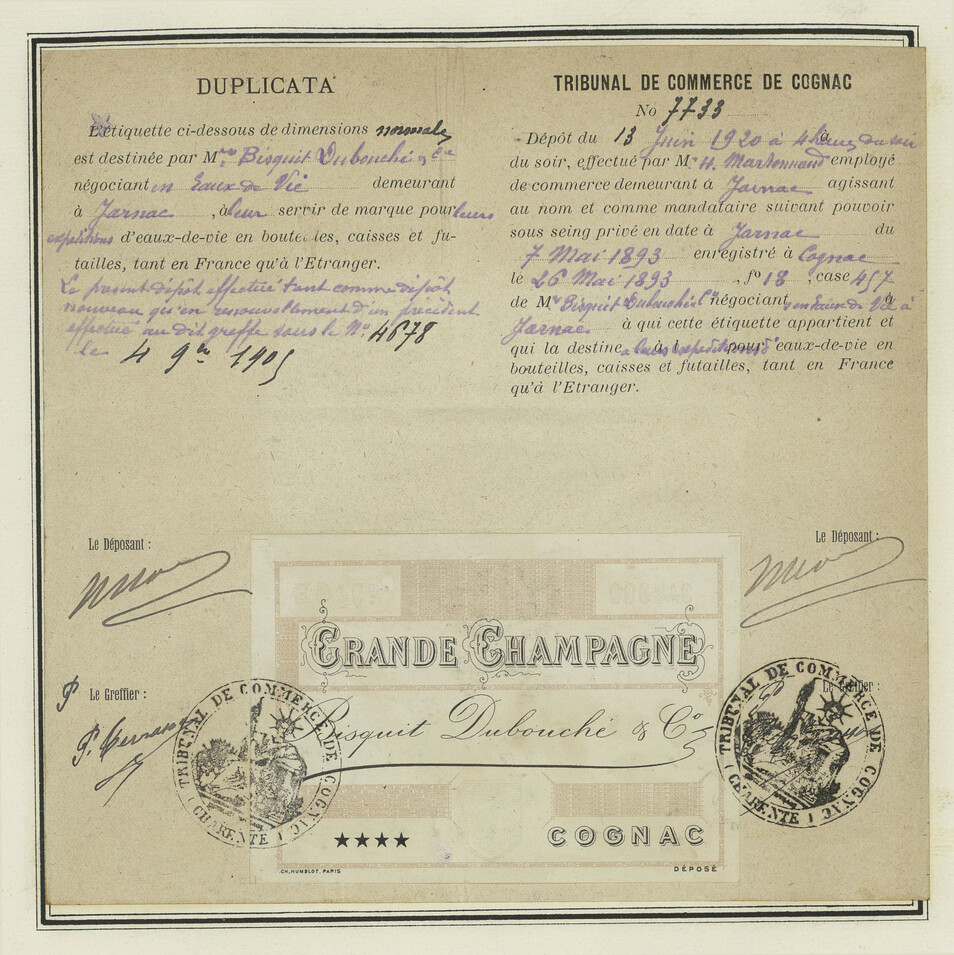 DUPLICATA
L'étiquette ci-dessous de dimensions normales
est destinée par Mrs Bisquit Dubouché & Cie
négociant en Eaux de Vie demeurant
à Jarnac, à leur servir de marque pour leurs
expéditions d'eaux-de-vie en bouteilles, caisses et fu-
tailles, tant en France qu'à l'Etranger.
Le présent dépôt effectué tant comme dépôt
nouveau qu'en renouvellement d'un précédent
effectué au dit greffe sous le No. 4678
le 4 9bre 1905
Le Déposant :
P Le Greffier :
TRIBUNAL DE COMMERCE DE COGNAC
No 7733
Dépôt du 13 Juin 1920 à 4 heures du soir
du soir, effectué par Mr H. employé
de commerce demeurant à Jarnac agissant
au nom et comme mandataire suivant pouvoir
sous seing privé en date à Jarnac du
7 Mai 1893 enregistré à Cognac
le 26 Mai 1893, fo 18, case 457
de Mrs Bisquit Dubouché & Cie négociants en Eaux de Vie à
Jarnac à qui cette étiquette appartient et
qui la destine à leurs expéditions d'eaux-de-vie en
bouteilles, caisses et futailles, tant en France
qu'à l'Etranger.
Le Déposant :
Le Greffier :
GRANDE CHAMPAGNE
Bisquit Dubouché & Co
★★★★
COGNAC
CH. HUMBLOT, PARIS
DÉPOSÉ
TRIBUNAL DE COMMERCE DE COGNAC
(CHARENTE)
TRIBUNAL DE COMMERCE DE COGNAC
(CHARENTE)